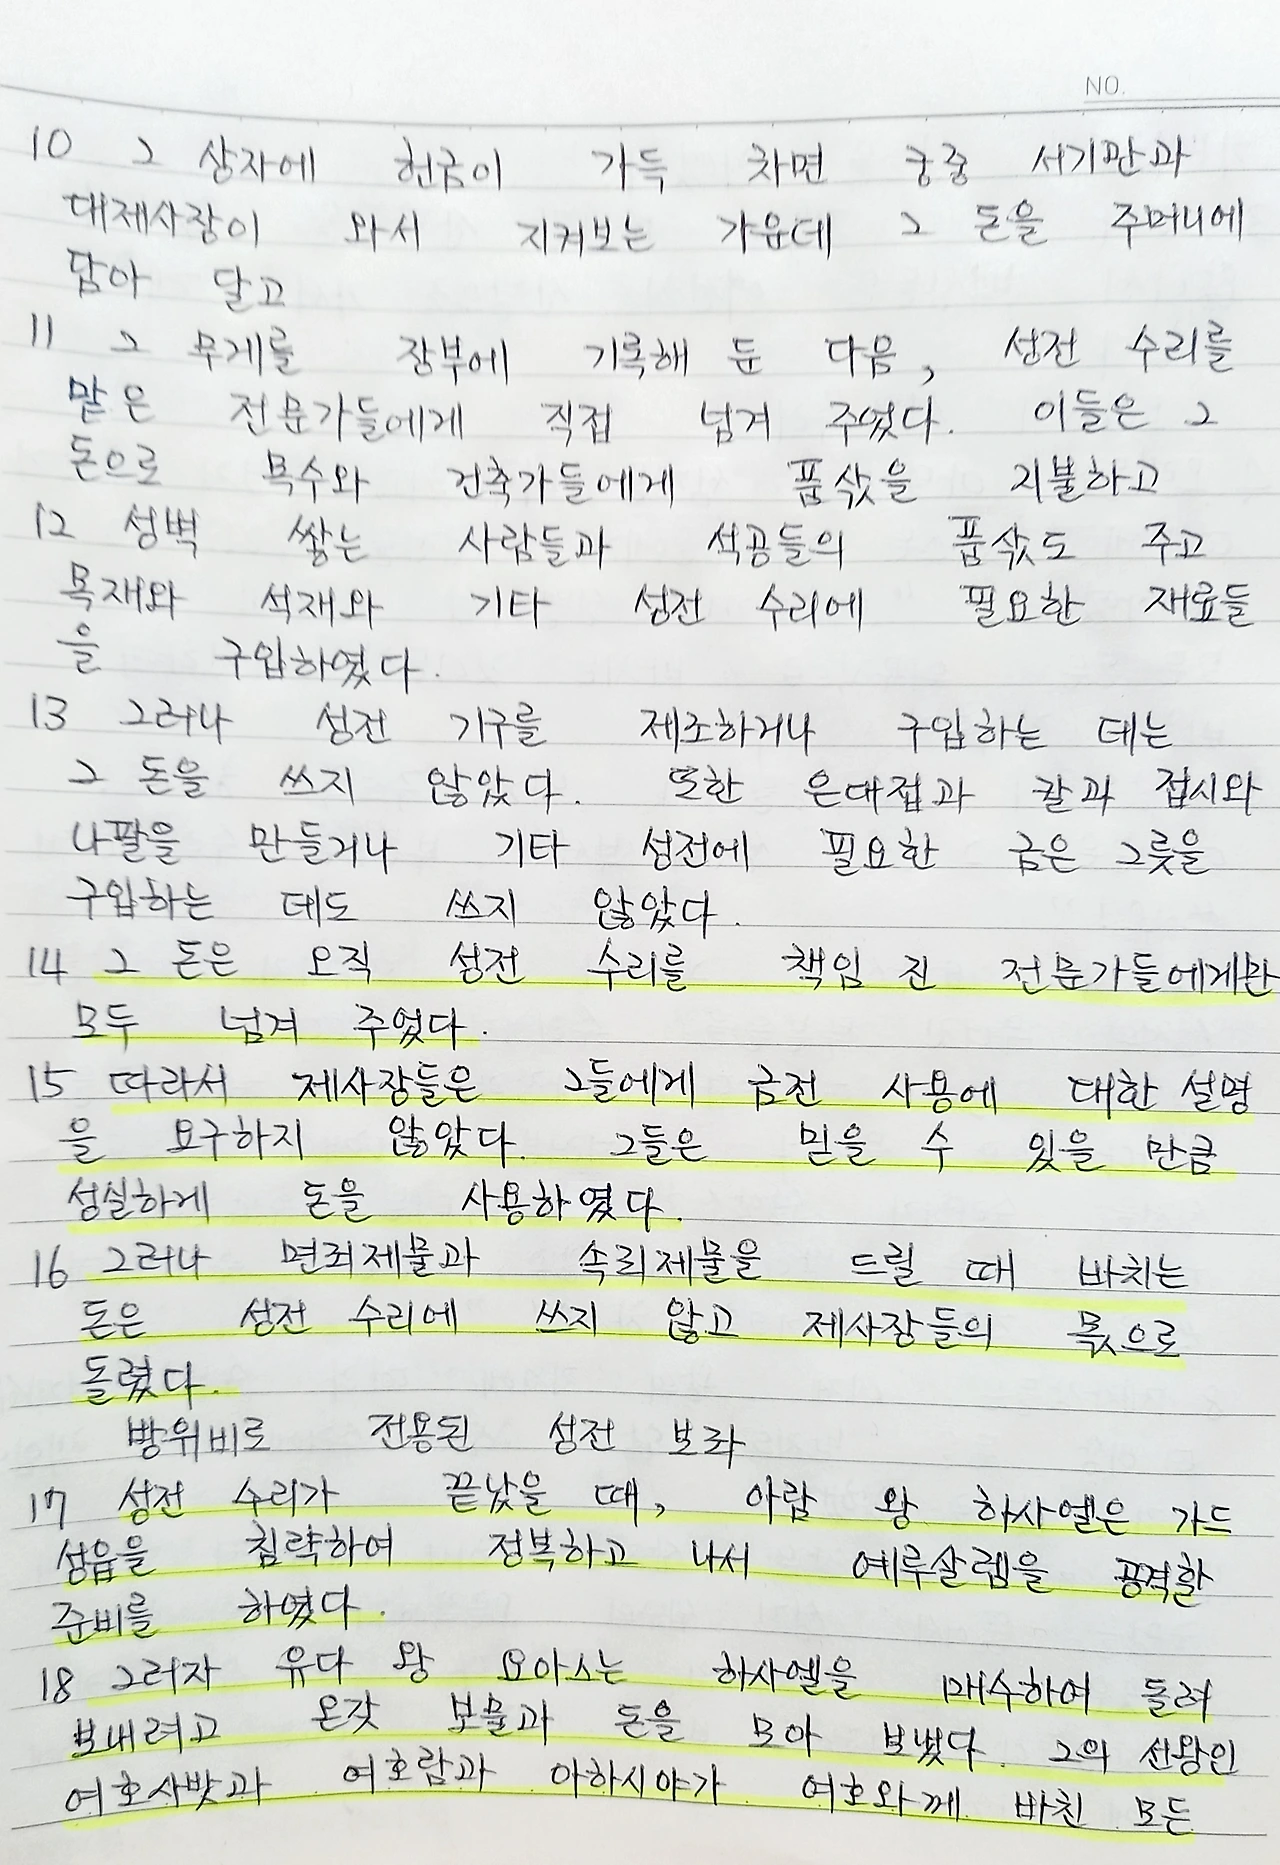 NO.
10 그 상자에 헌금이 가득 차면 궁중 서기관과
대제사장이 와서 지켜보는 가운데 그 돈을 주머니에
담아 달고
11 그 무게를 장부에 기록해 둔 다음, 성전 수리를
맡은 전문가들에게 직접 넘겨 주었다. 이들은 그
돈으로 목수와 건축가들에게 품삯을 지불하고
12 성벽 쌓는 사람들과 석공들의 품삯도 주고
목재와 석재와 기타 성전 수리에 필요한 재료들
을 구입하였다.
13 그러나 성전 기구를 제조하거나 구입하는 데는
그 돈을 쓰지 않았다. 또한 은대접과 칼과 접시와
나팔을 만들거나 기타 성전에 필요한 금은 그릇을
구입하는 데도 쓰지 않았다.
14 그 돈은 오직 성전 수리를 책임 진 전문가들에게만
모두 넘겨 주었다.
15 따라서 제사장들은 그들에게 금전 사용에 대한 설명
을 요구하지 않았다. 그들은 믿을 수 있을 만큼
성실하게 돈을 사용하였다.
16 그러나 면죄제물과 속죄제물을 드릴 때 바치는
돈은 성전 수리에 쓰지 않고 제사장들의 몫으로
돌렸다.
방위비로 전용된 성전 보화
17 성전 수리가 끝났을 때, 아람 왕 하사엘은 가드
성읍을 침략하여 정복하고 나서 예루살렘을 공격할
준비를 하였다.
18 그러자 유다 왕 요아스는 하사엘을 매수하여 돌려
보내려고 온갖 보물과 돈을 모아 보냈다. 그의 선왕인
여호사밧과 여호람과 아하시야가 여호와께 바친 모든